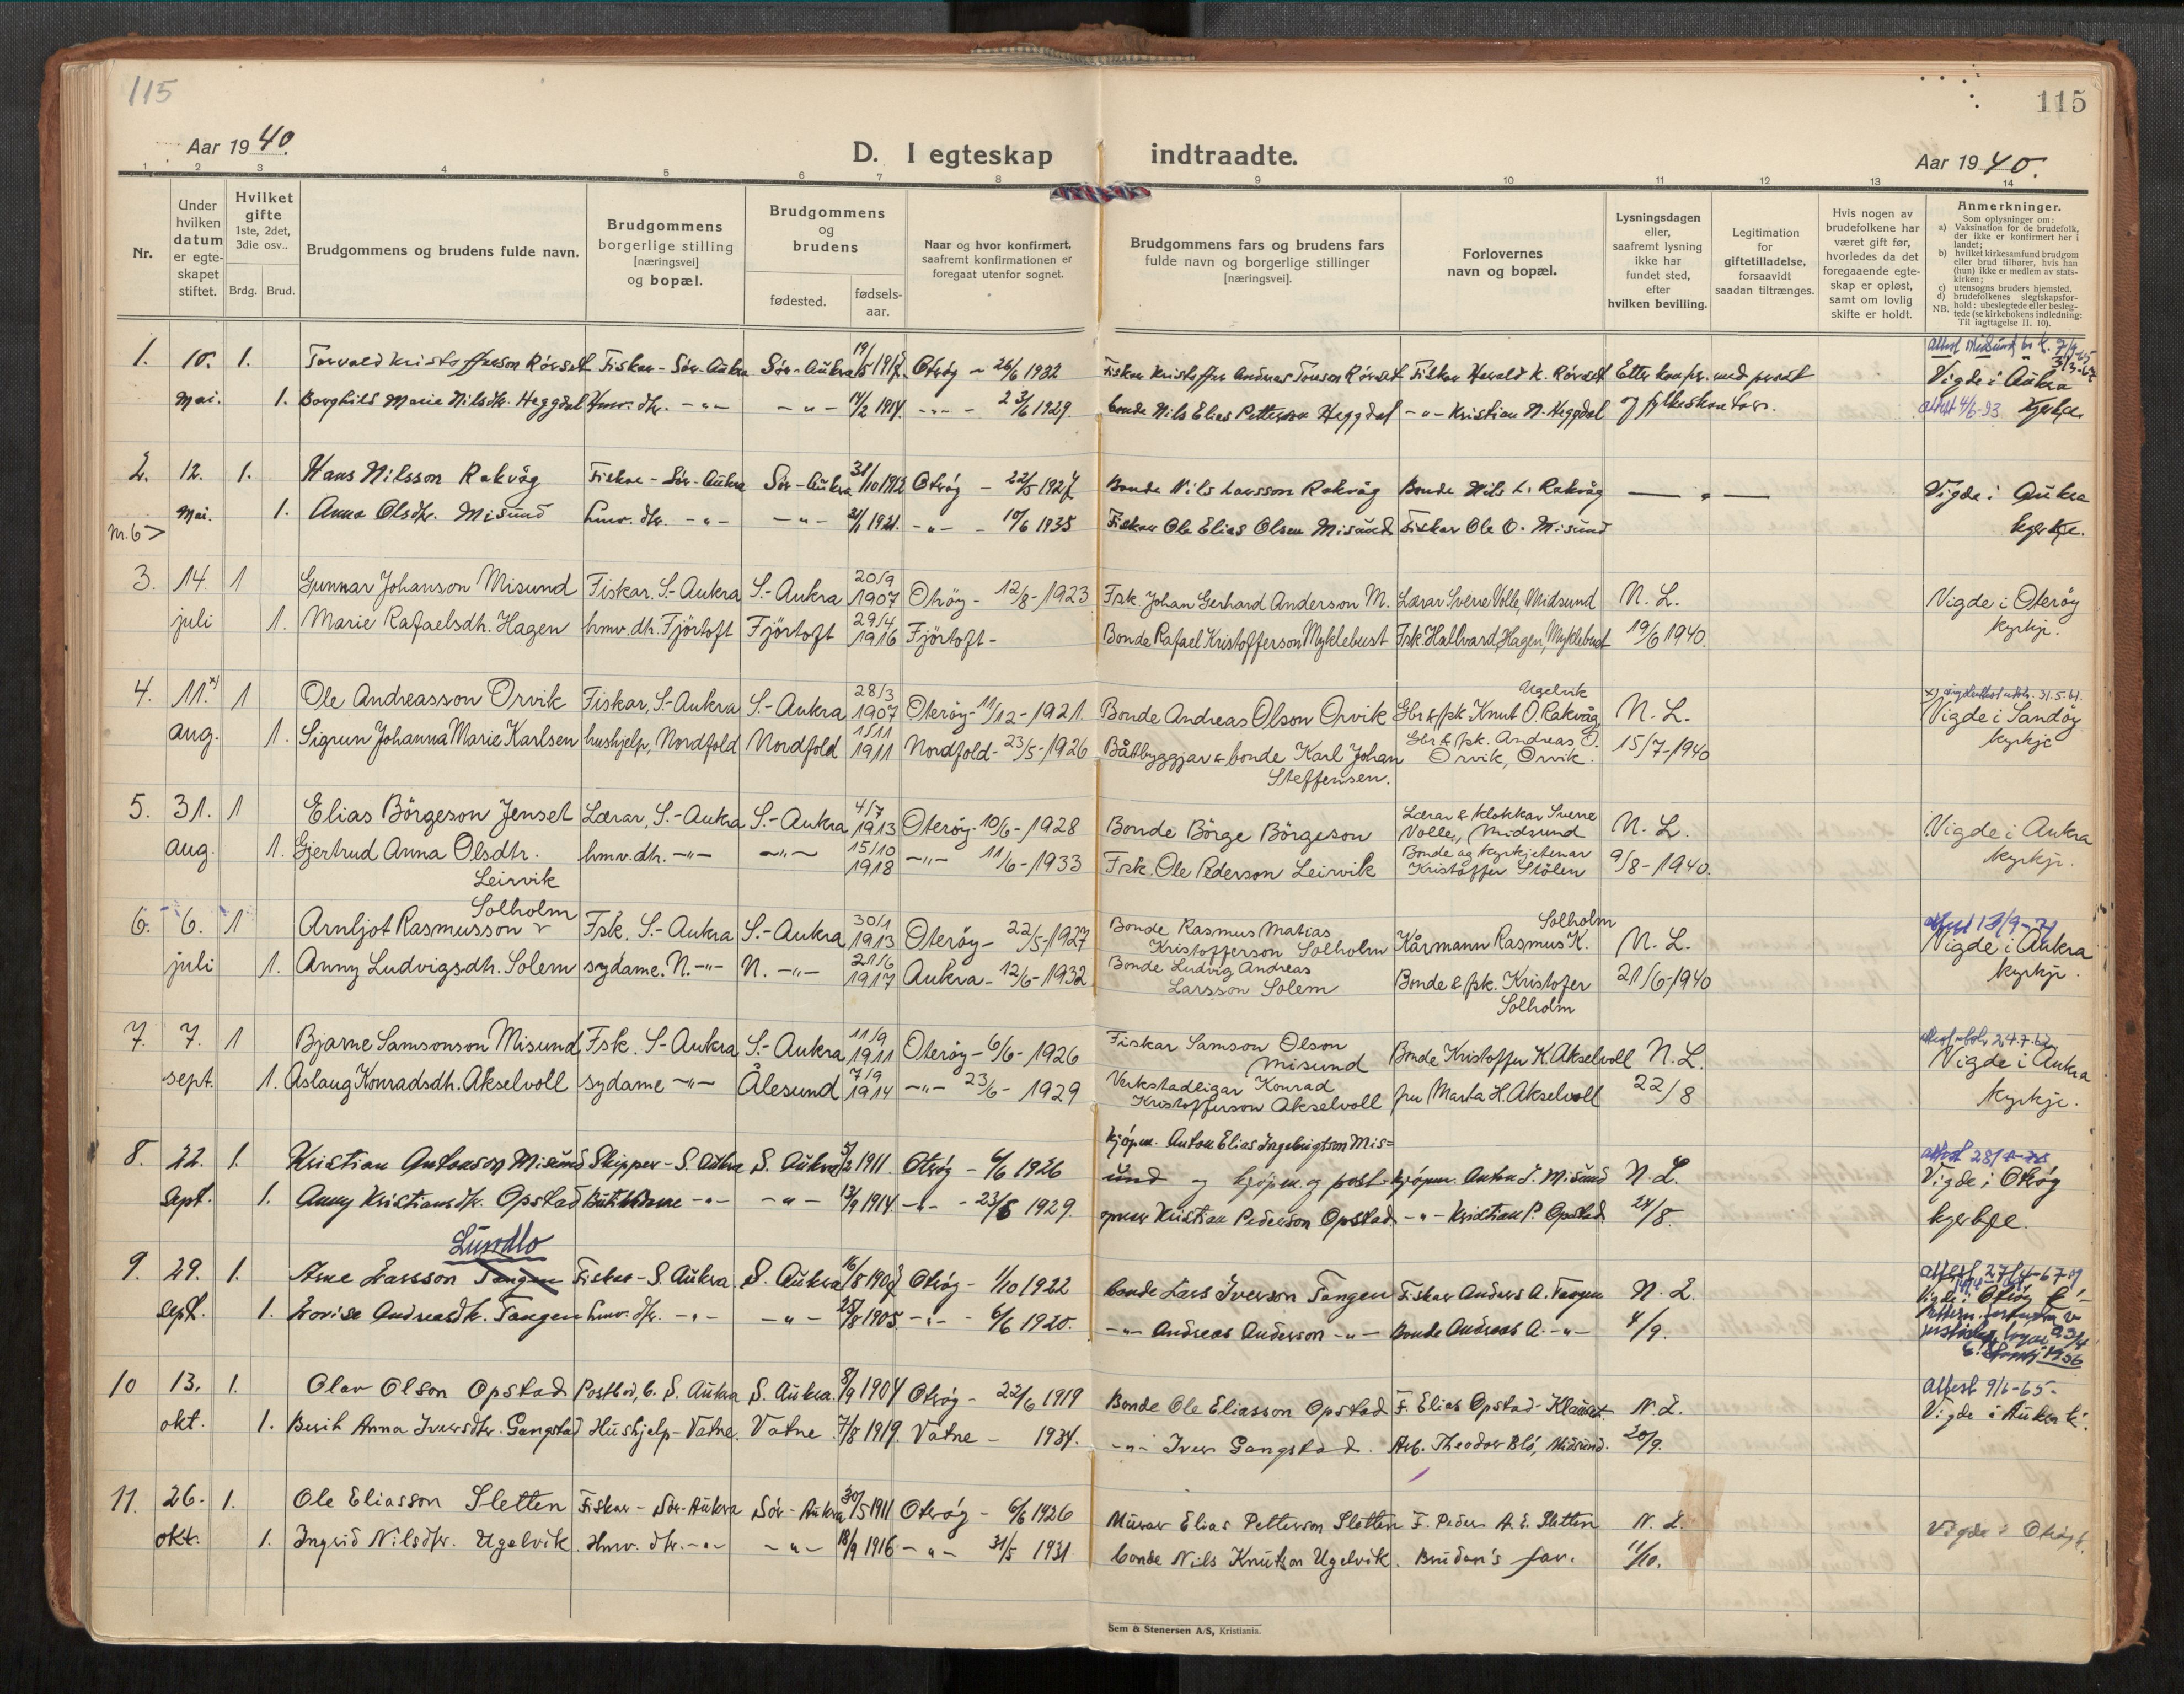 115
115
Aar 1940.
D. I egteskap indtraadte.
Aar 1940.
1 2 3 4 5 6 7 8 9 10 11 12 13 14
Nr.
Under hvilken datum er egte-skapet stiftet.
Hvilket gifte 1ste, 2det, 3die osv..
Brdg. Brud.
Brudgommens og brudens fulde navn.
Brudgommens borgerlige stilling [næringsvei] og bopæl.
Brudgommens og brudens
fødested. fødsels-aar.
Naar og hvor konfirmert, saafremt konfirmationen er foregaat utenfor sognet.
Brudgommens fars og brudens fars fulde navn og borgerlige stillinger [næringsvei].
Forlovernes navn og bopæl.
Lysningsdagen eller, saafremt lysning ikke har fundet sted, efter hvilken bevilling.
Legitimation for giftetilladelse, forsaavidt saadan tiltrænges.
Hvis nogen av brudefolkene har været gift før, hvorledes da det foregaaende egte-skap er opløst, samt om lovlig skifte er holdt.
Anmerkninger.
Som oplysninger om:
a) Vaksination for de brudefolk, der ikke er konfirmert her i landet;
b) hvilket kirkesamfund brudgom eller brud tilhører, hvis han (hun) ikke er medlem av stats-kirken;
c) utensogns bruders hjemsted.
d) brudefolkenes slegtskapsfor-hold: ubeslegtede eller besleg-tede (se kirkebokens indledning: Til iagttagelse II. 10).
NB.
1. 10. 1. Torvald Kristofferson Rørset Fiskar - Sør-Aukra Sør-Aukra 19/5 1917. Otrøy - 26/6 1932 Fiskar Kristoffer Andreas Tonson Rørset Fiskar Harald K. Rørset Etter konfr. med prost Vigde i Aukra
mai. 1. Borghild Marie Nilsdtr. Heggdal Hmv. dtr. -"- -"- 14/2 1914. -"- 23/6 1929. bonde Nils Elias Petterson Heggdal -"- Kristian N. Heggdal og fylkeskontor. attest 4/6-93 kyrkje.
2. 12. 1. Hans Nilsson Rakvåg Fiskar - Sør-Aukra Sør-Aukra 31/10 1912 Otrøy - 22/5 1927. Bonde Nils Larsson Rakvåg Bonde Nils L. Rakvåg — " — Vigde i Aukra
mai. 1. Anna Olsdtr. Misund hmv. dtr. -"- -"- 21/1 1921. -"- - 10/6 1935 Fiskar Ole Elias Olsen Misund Fiskar Ole O. Misund kyrkje.
Nr. 6 >
3. 14. 1 Gunnar Johanson Misund Fiskar. S.-Aukra S.-Aukra 20/9 1907 Otrøy - 12/8-1923 Fsk. Johan Gerhard Anderson M. Lærar Sverre Volle, Midsund N. L. Vigde i Oterøy
juli 1. Marie Rafaelsdh. Hagen hmv. dh. Fjörtoft Fjörtoft 29/4 1916 Fjörtoft - Bonde Rafael Kristofferson Myklebust Fsk. Hallvard Hagen, Myklebust 19/6 1940. kyrkje.
4. 11.x) 1 Ole Andreasson Orvik Fiskar, S.-Aukra S.-Aukra 28/3 1907 Oterøy - 11/12-1921. Bonde Andreas Olson Orvik Gbr & fsk Knut O. Rakvåg, Ugelvik N. L. x) vigselattest utskr. 31.5.61. Vigde i Sandøy
aug. 1. Sigrun Johanna Marie Karlsen hushjelp, Nordfold Nordfold 1/11 1911 Nordfold - 23/5-1926 Båtbyggjar & bonde Karl Johan Steffensen. Gbr & fsk. Andreas O. Orvik, Orvik. 15/7-1940 kyrkje
5. 31. 1 Elias Börgeson Jenset Lærar, S.-Aukra S.-Aukra 4/7 1913 Oterøy - 10/6-1928 Bonde Börge Börgeson Lærar & klokkar Sverre Volle, Midsund N. L. Vigde i Aukra
aug. 1. Gjertrud Anna Olsdtr. Leirvik hmv. dh. -"- -"- 15/10 1918 -"- 11/6-1933 Fsk. Ole Pederson Leirvik Bonde og kyrkjetenar Kristoffer Stölen 9/8-1940. kyrkje.
6. 6. 1 Arnljot Rasmusson Solholm Fsk. S.-Aukra S.-Aukra 30/1 1913 Oterøy - 22/5-1927 Bonde Rasmus Matias Kristofferson Solholm Kårmann Rasmus K. Solholm N. L. Vigde i Aukra
juli 1. Anny Ludvigsdh. Solem sydame. N. -"- N. -"- 21/6 1917 Aukra - 12/6-1932 Bonde Ludvig Andreas Larsson Solem Bonde & fsk. Kristofer Solholm 21/6-1940 kyrkje.
7. 7. 1 Bjarne Samsonson Misund Fsk. S-Aukra S.-Aukra 11/9 1911 Oterøy - 6/6-1926 Fiskar Samson Olson Misund Bonde Kristoffer K. Akselvoll N. L. Vigde i Aukra
sept. 1. Aslaug Konradsdh. Akselvoll sydame -"- Ålesund 7/9 1914 -"- 23/6-1929 Verkstadeigar Konrad Kristofferson Akselvoll fru Marta H. Akselvoll 22/8 kyrkje.
8. 22. 1. Kristian Antonson Misund Skipper - S. Aukra S. Aukra 1911. Otrøy - 6/6 1926 kjøpm. Anton Elias Ingebrigtson Mis=und og kjøpm. og post- kjøpm. Anton I. Misund N. L. Vigde i Otrøy
sept. 1. Anny Kristiansdtr. Opstad -"- -"- 13/9 1914. -"- - 23/6 1929. opner Kristian Pederson Opstad -"- Kristian P. Opstad 24/8. kyrkje.
Lundlo
9. 29. 1. Arne Larsson Tangen Fiskar - S. Aukra S. Aukra 16/8 1907 Otrøy - 1/10 1922 bonde Lars Iverson Tangen Fiskar Anders A. Tangen N. L. Vigde i Otrøy k.
sept. 1. Lovise Andreasdtr. Tangen hmv. dtr. -"- -"- 25/8 1905. -"- - 6/6 1920. -"- Andreas Anderson -"- Bonde Andreas A. -"- 4/9.
10 13. 1. Olav Olson Opstad Postbod, b. S. Aukra S. Aukra. 8/9 1904 Otrøy - 22/6 1919 Bonde Ole Eliasson Opstad F. Elias Opstad - Klauset N. L. Attest 9/6-65- Vigde i Aukra k.
okt. 1. Berit Anna Iversdtr. Gangstad Hushjelp - Vatne. Vatne. 7/8 1919. Vatne - 1934. -"- Iver Gangstad. Arb. Theodor Blø, Midsund. 20/9.
11. 26. 1. Ole Eliasson Sletten Fiskar - Sør-Aukra Sør-Aukra 30/5 1911 Otrøy - 6/6 1926 Murar Elias Petterson Sletten F. Peder A. E. Sletten N. L. Vigde i Otrøy k.
okt. 1. Ingrid Nilsdtr. Ugelvik. Hmv. dtr. -"- -"- 18/9 1916 -"- 31/5 1931 bonde Nils Knutson Ugelvik. Bruden's far. 11/10.
Sem & Stenersen A/S, Kristiania.